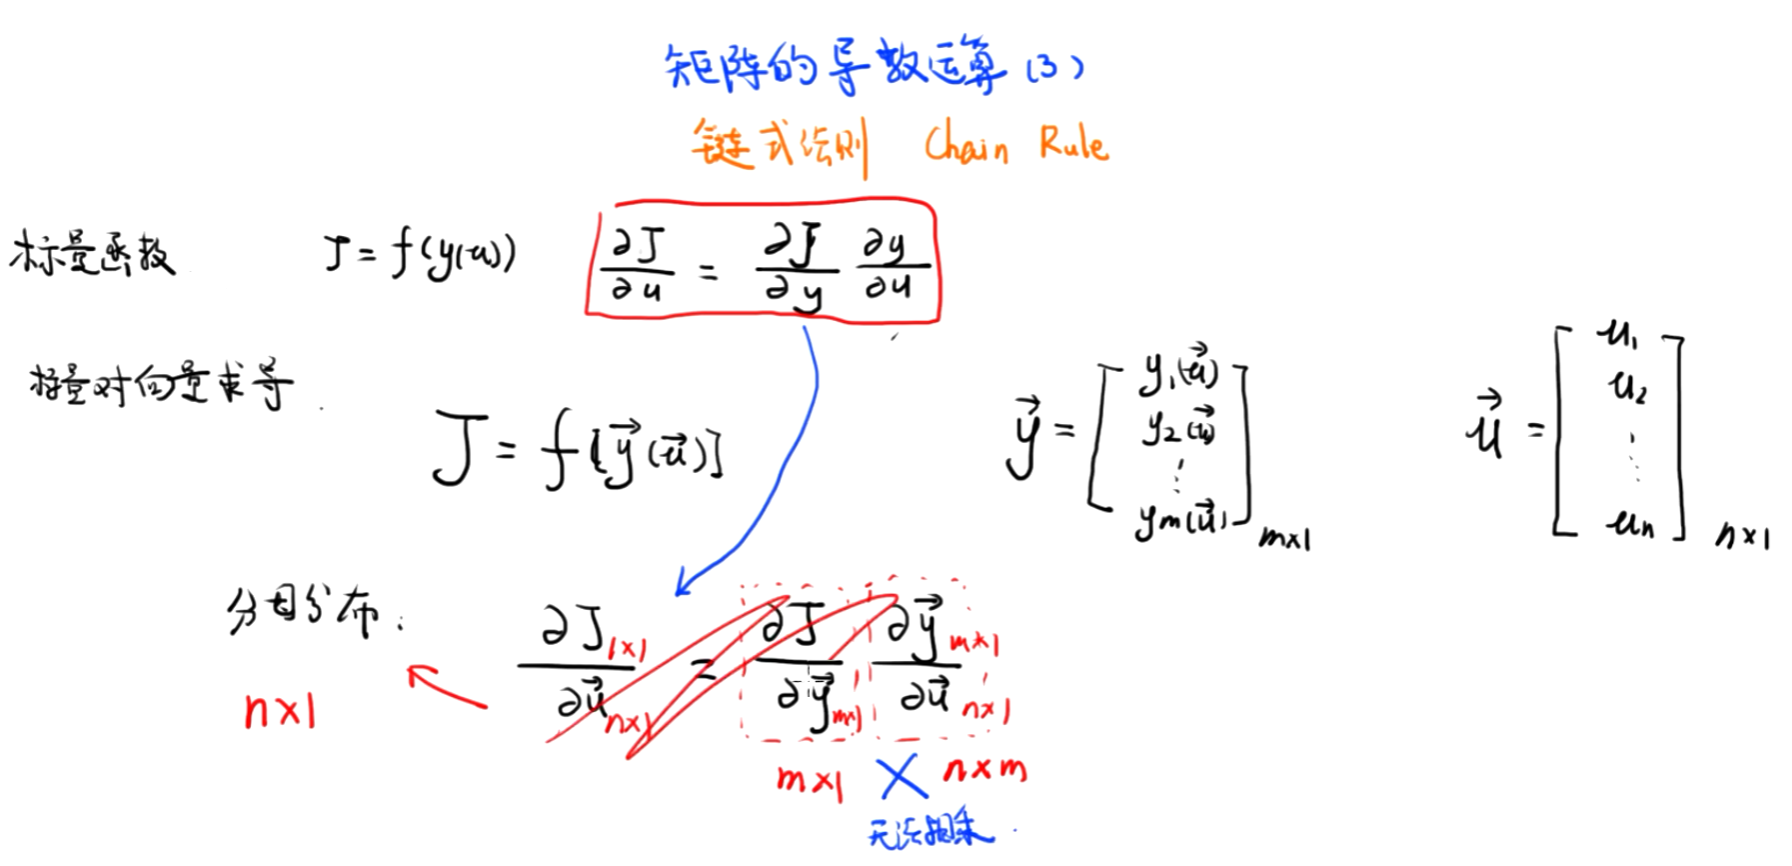 矩阵的导数运算(3)
链式法则 Chain Rule
标量函数 J = f(y(u)) ∂J/∂u = ∂J/∂y ∂y/∂u
标量对向量求导
J = f[y⃗(u⃗)] y⃗ = [y₁(u⃗) y₂(u⃗) ⋮ ym(u⃗)] m×1 u⃗ = [u₁ u₂ ⋮ un] n×1
分母布局. ∂J 1×1 / ∂u⃗ n×1 = ∂J / ∂y⃗ m×1 ∂y⃗ m×1 / ∂u⃗ n×1
n×1
m×1 × n×m
无法相乘.